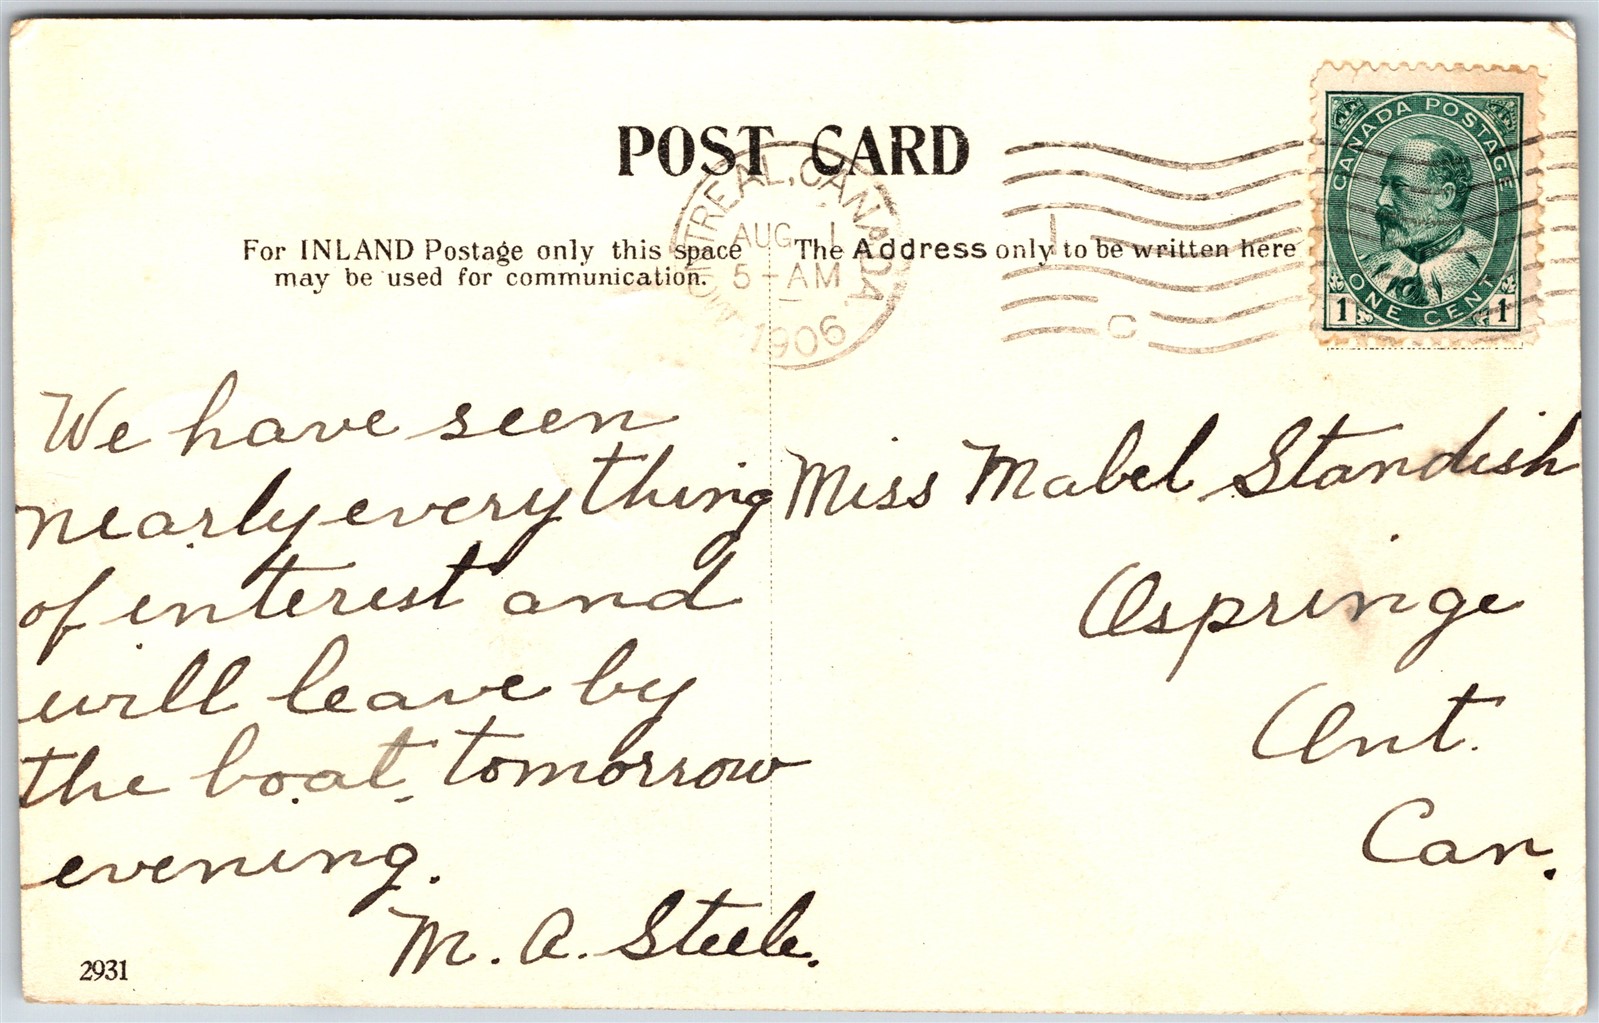 POST CARD
TREAL, CANADA
AUG 1
5-AM
1906
C
CANADA POSTAGE
ONE CENT
1 1
For INLAND Postage only this space
may be used for communication.
The Address only to be written here
We have seen
nearly everything
of interest and
will leave by
the boat tomorrow
evening.
M. A. Steele.
Miss Mabel Standish
Ospringe
Ont.
Can.
2931